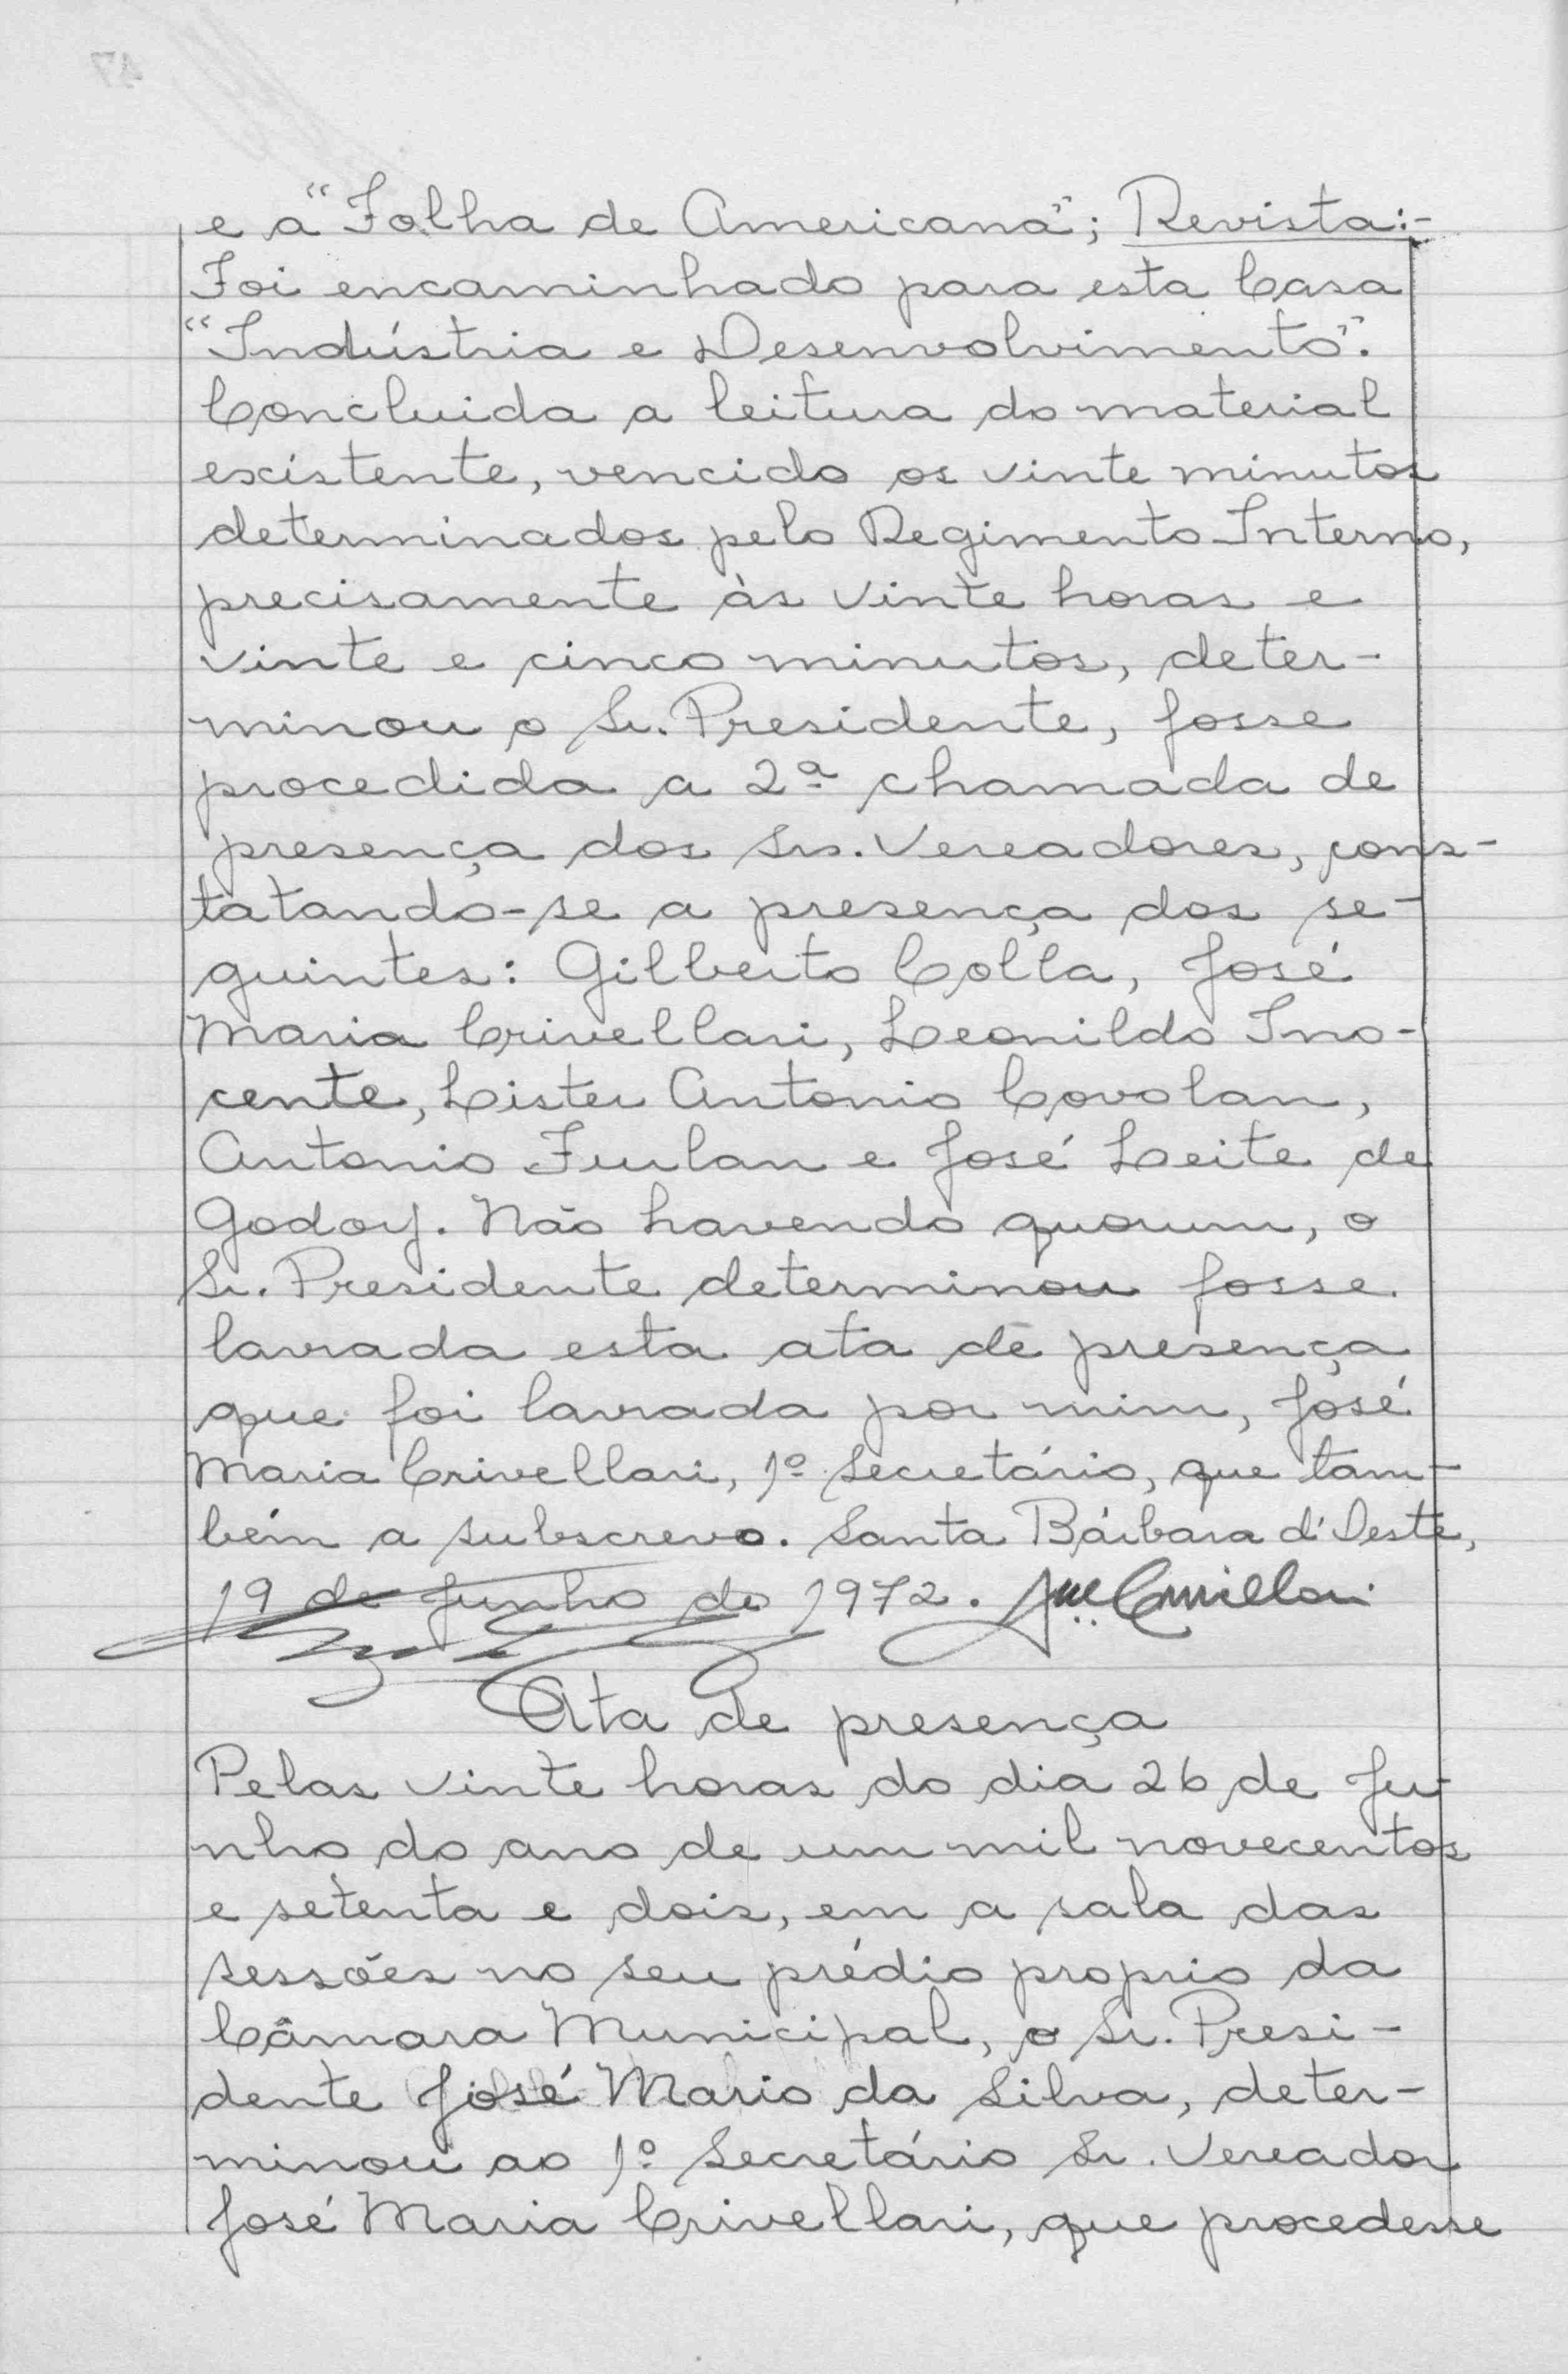 e a "Folha de Americana"; Revista:-
Foi encaminhado para esta Casa
"Indústria e Desenvolvimento".
Concluida a leitura do material
existente, vencido os vinte minutos
determinados pelo Regimento Interno,
precisamente às vinte horas e
vinte e cinco minutos, deter-
minou o Sr. Presidente, fosse
procedida a 2ª chamada de
presença dos Srs. Vereadores, cons-
tatando-se a presença dos se-
guintes: Gilberto Colla, José
Maria Crivellari, Leonildo Ino-
cente, Lister Antonio Covolan,
Antonio Furlan e José Leite de
Godoy. Não havendo quorum, o
Sr. Presidente determinou fosse
lavrada esta ata de presença
que foi lavrada por mim, José
Maria Crivellari, 1º Secretário, que tam-
bém a subscrevo. Santa Bárbara d'Oeste,
19 de Junho de 1972.
Ata de presença
Pelas vinte horas do dia 26 de Ju-
nho do ano de um mil novecentos
e setenta e dois, em a sala das
sessões no seu prédio proprio da
Câmara Municipal, o Sr. Presi-
dente José Mario da Silva, deter-
minou ao 1º Secretário Sr. Vereador
José Maria Crivellari, que procedesse